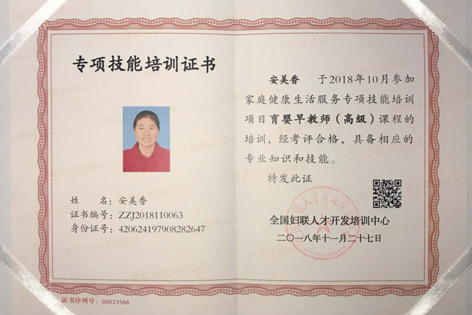 专项技能培训证书
姓 名：安美香
证书编号：ZZJ2018110063
身份证号：420624197908282647
证书序列号：00023566
安美香 于2018年10月参加
家庭健康生活服务专项技能培训
项目育婴早教师（高级）课程的
培训，经考评合格，具备相应的
专业知识和技能。
特发此证
全国妇联人才开发培训中心
二〇一八年十一月二十七日